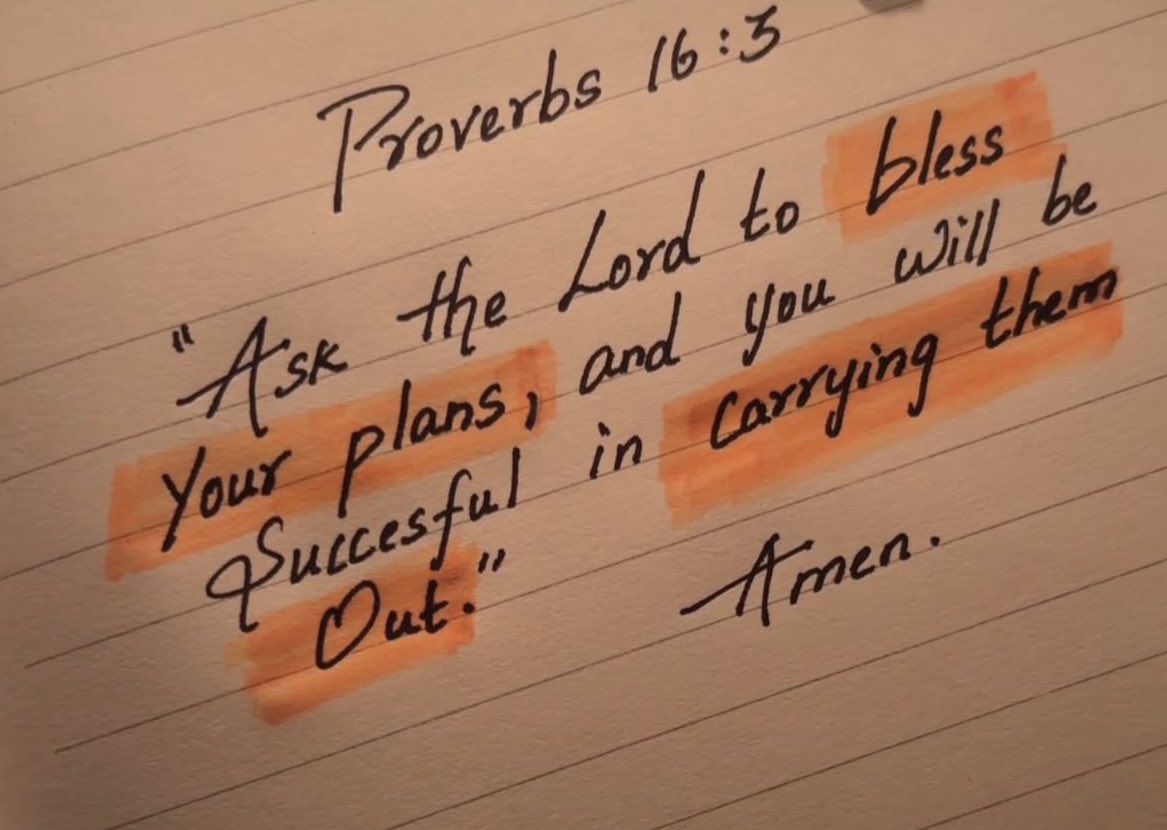 Proverbs 16:3
"Ask the Lord to bless
Your plans, and you will be
Succesful in carrying them
Out."
Amen.